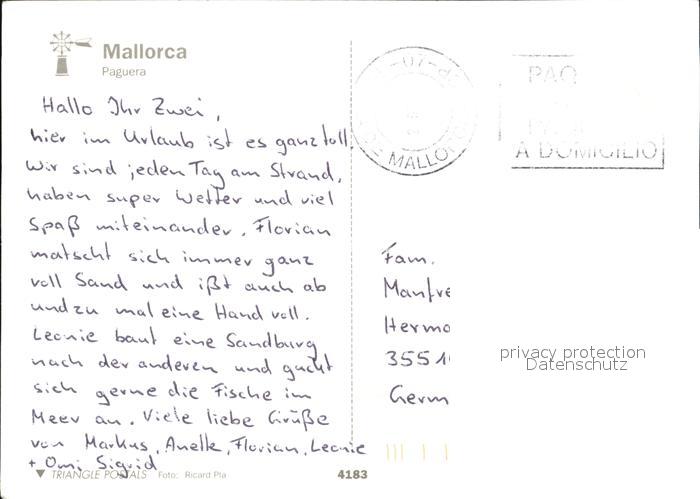 Mallorca
Paguera
Hallo Ihr Zwei,
hier im Urlaub ist es ganz toll.
Wir sind jeden Tag am Strand,
haben super Wetter und viel
Spaß miteinander. Florian
matscht sich immer ganz
voll Sand und ißt auch ab
und zu mal eine Hand voll.
Leonie baut eine Sandburg
nach der anderen und guckt
sich gerne die Fische im
Meer an. Viele liebe Grüße
von Markus, Anette, Florian, Leonie
+ Omi Sigrid
TRIANGLE POSTALS Foto: Ricard Pla
4183
MALLOR
PAQ
A DOMICILIO
Fam.
Manfre
Herma
3551
Germ
privacy protection
Datenschutz